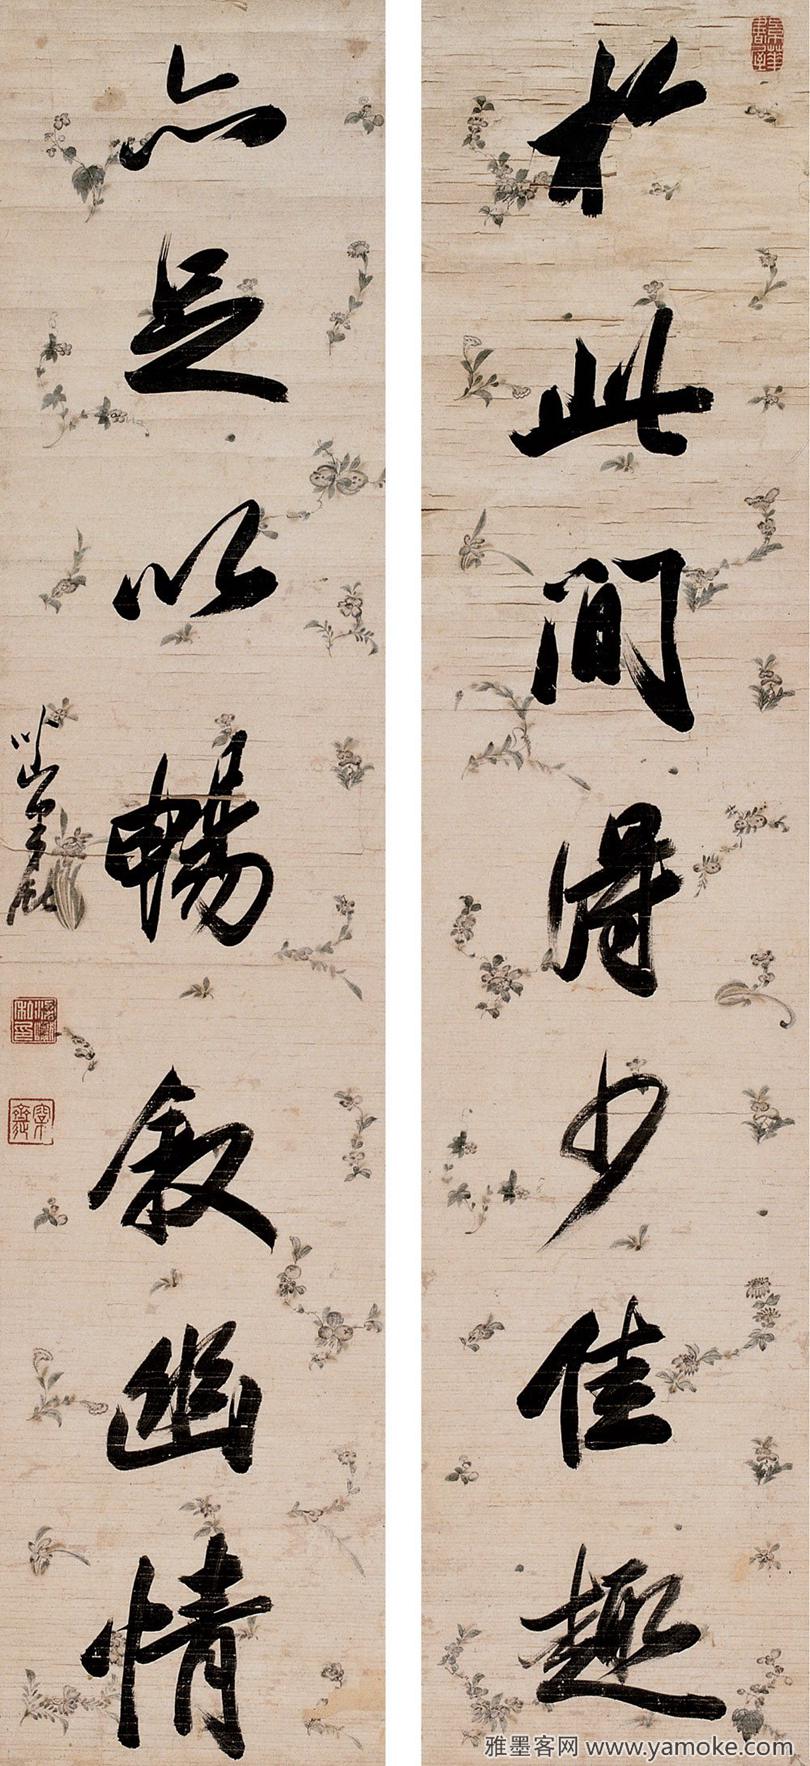 於此間得少佳趣
亦足以暢叙幽情
雅墨客网 www.yamoke.com